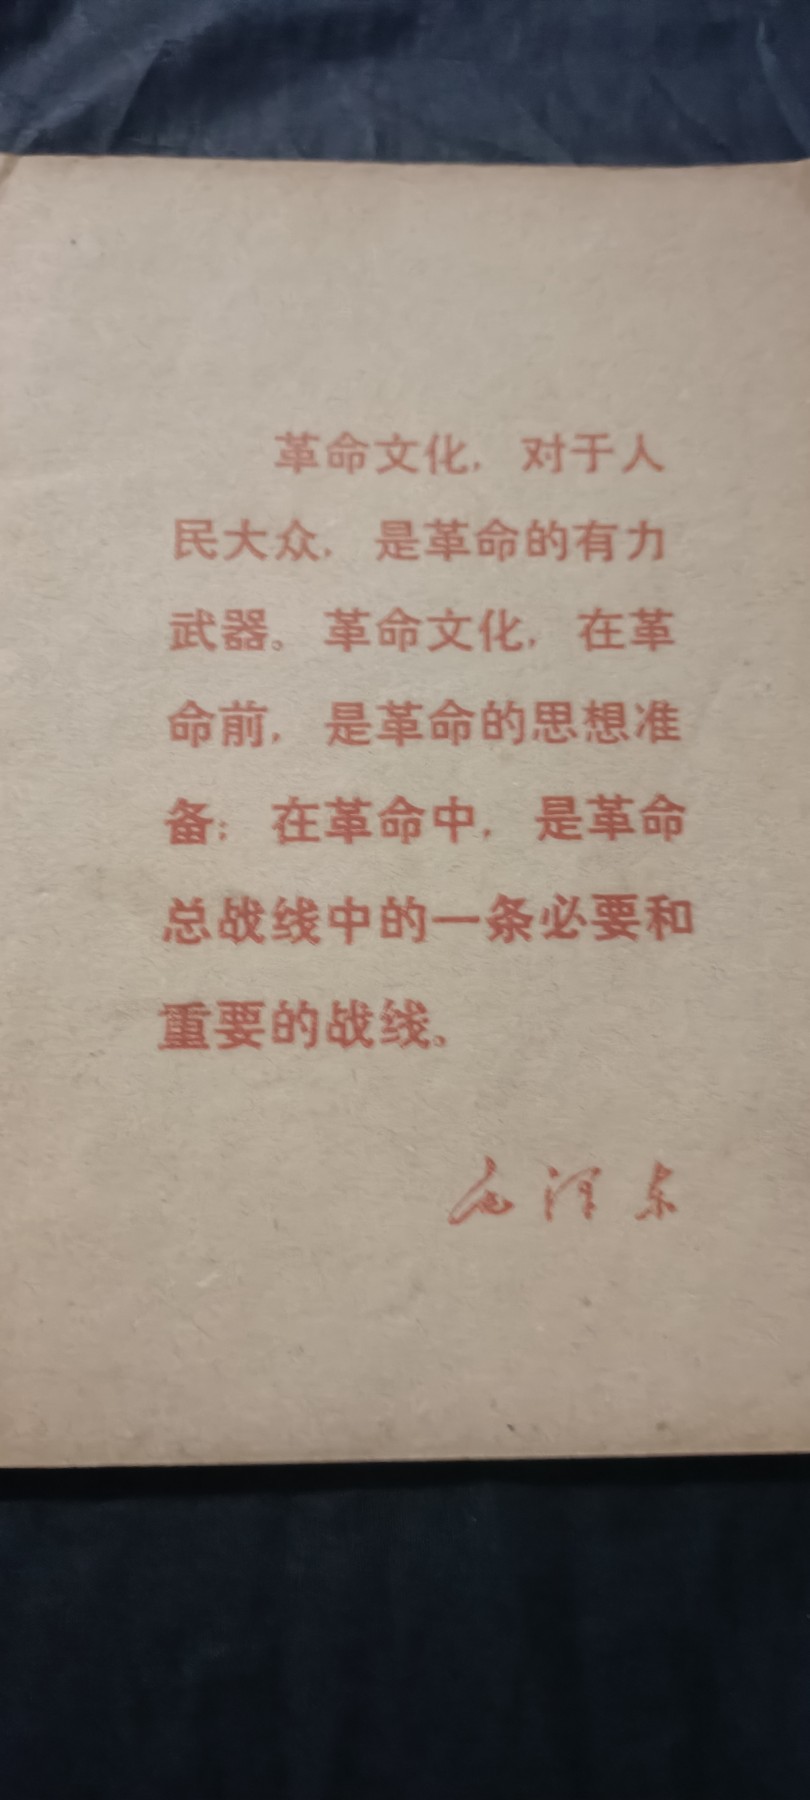 革命文化，对于人
民大众，是革命的有力
武器。革命文化，在革
命前，是革命的思想准
备；在革命中，是革命
总战线中的一条必要和
重要的战线。
毛泽东